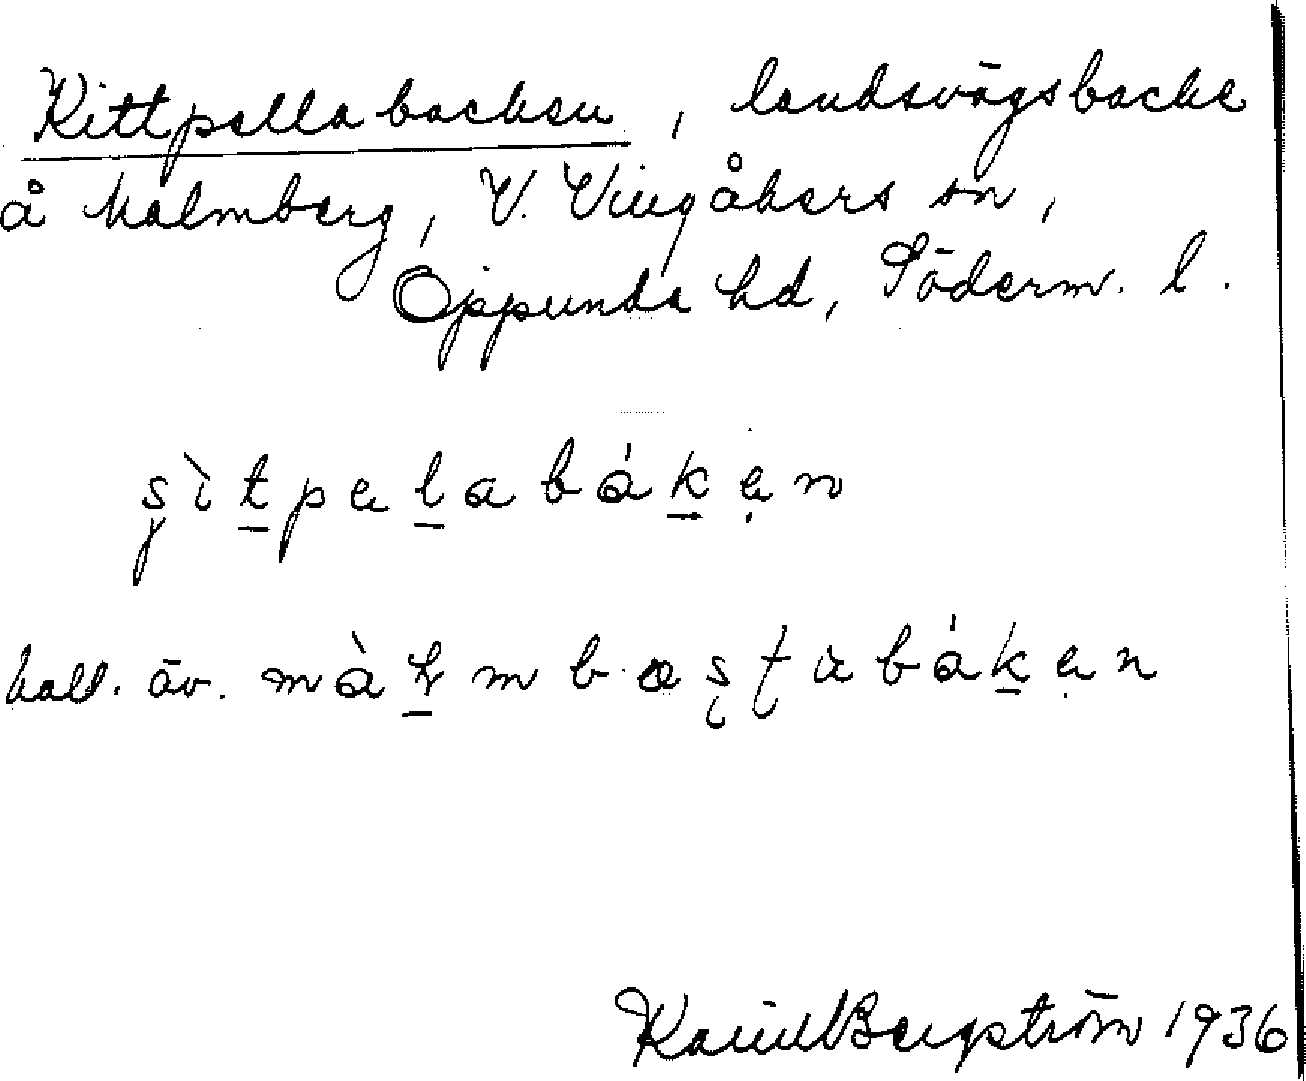 Kittpellabacken, landsvägsbacke
å Malmberg, V. Vingåkers sn,
Oppunda hd, Söderm. l.
ʂìt̲pel̲abák̲ẹn
kall. äv.
Bergström 1936